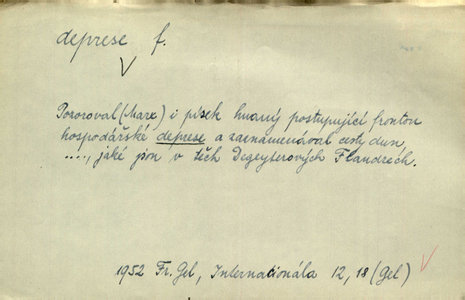 deprese f.
Pozoroval (Marx) i písek hnaný postupující frontou
hospodářské deprese a zaznamenával cesty dun,
...., jaké jsou v těch Degeyterových Flandrech.
1952 Fr. Gel, Internationála 12, 18 (Gel)